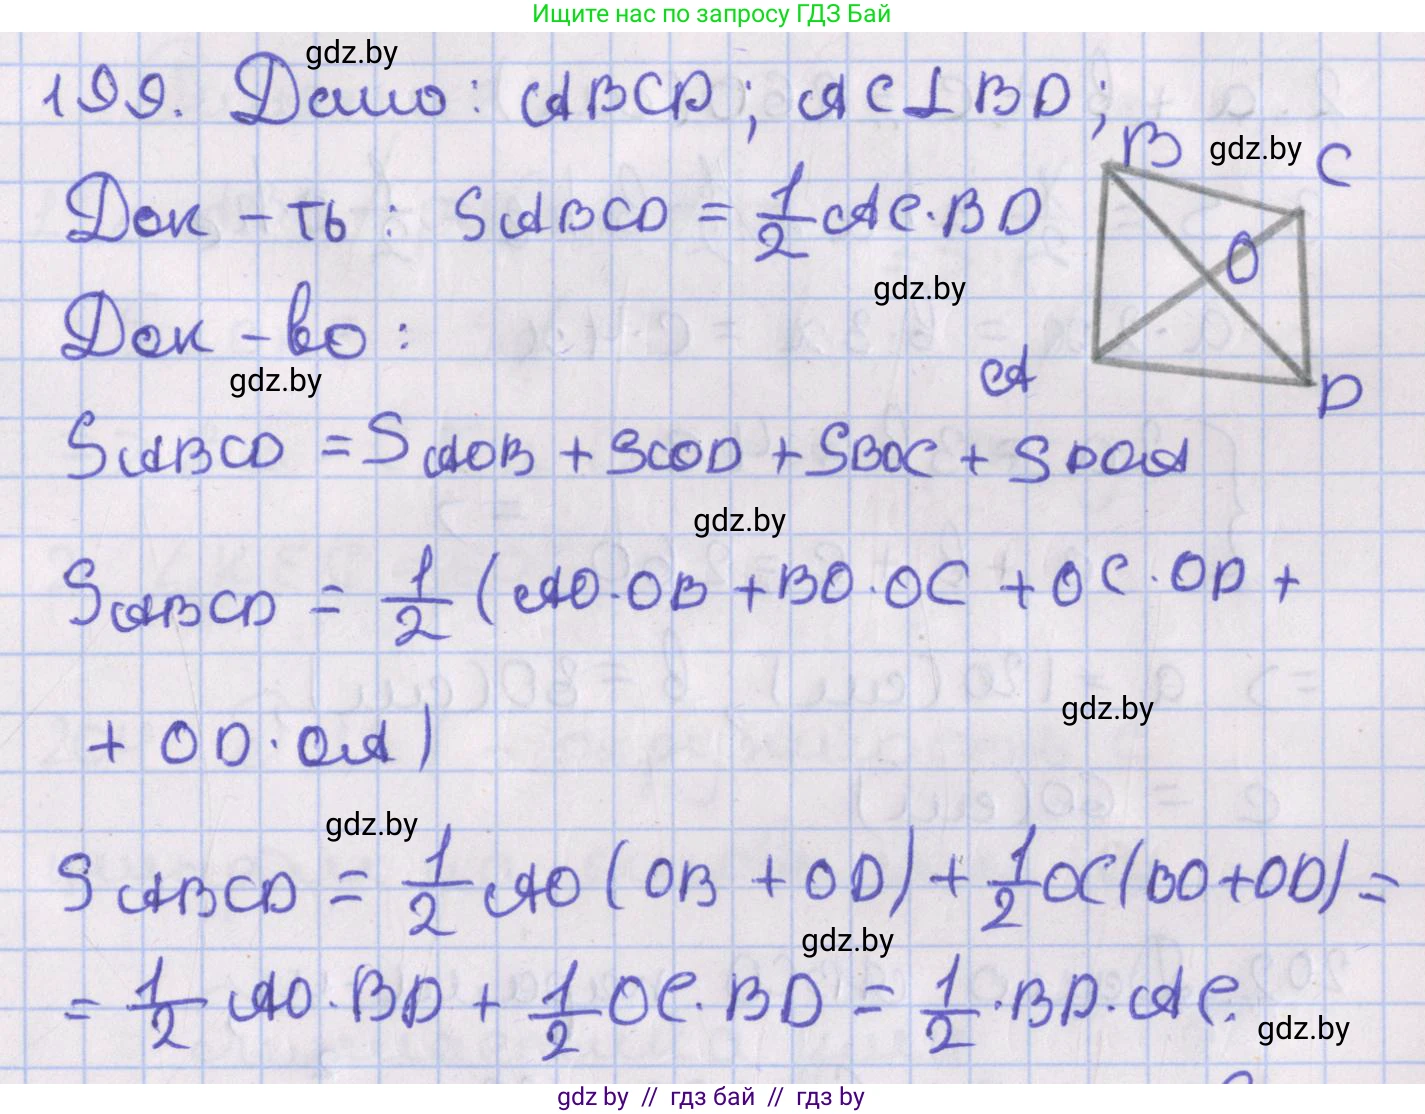 Ищите нас по запросу ГДЗ Бай
gdz.by
199. Дано: ABCD; AC⊥BD;
B gdz.by C
Док-ть: SABCD = 1/2 AC·BD
O
gdz.by
Док-во:
gdz.by
A D
SABCD = SAOB + SCOD + SBOC + SDOA
gdz.by
SABCD = 1/2 (AO·OB + BO·OC + OC·OD +
gdz.by
+ OD·OA)
gdz.by
SABCD = 1/2 AO (OB + OD) + 1/2 OC(BO+OD) =
gdz.by
= 1/2 AO·BD + 1/2 OC·BD = 1/2 ·BD·AC.
gdz.by
gdz by // гдз бай // гдз by